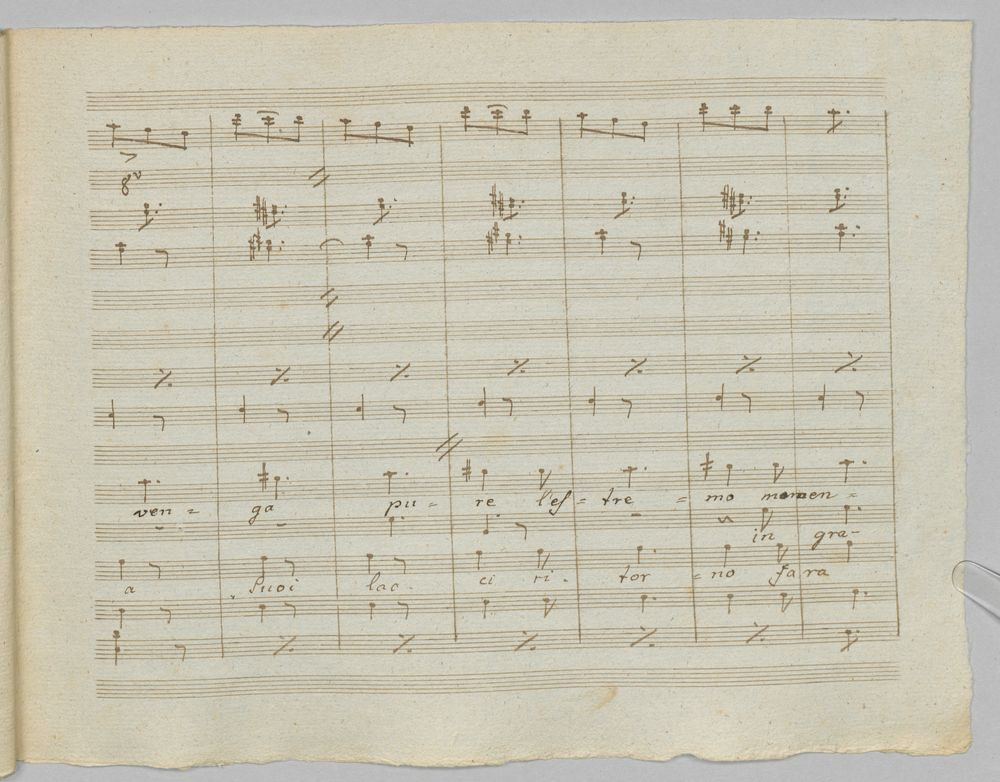 8va
ven = ga pu = re les = tre = mo momen =
in gra-
a suoi lac- ci ri- tor = no fara